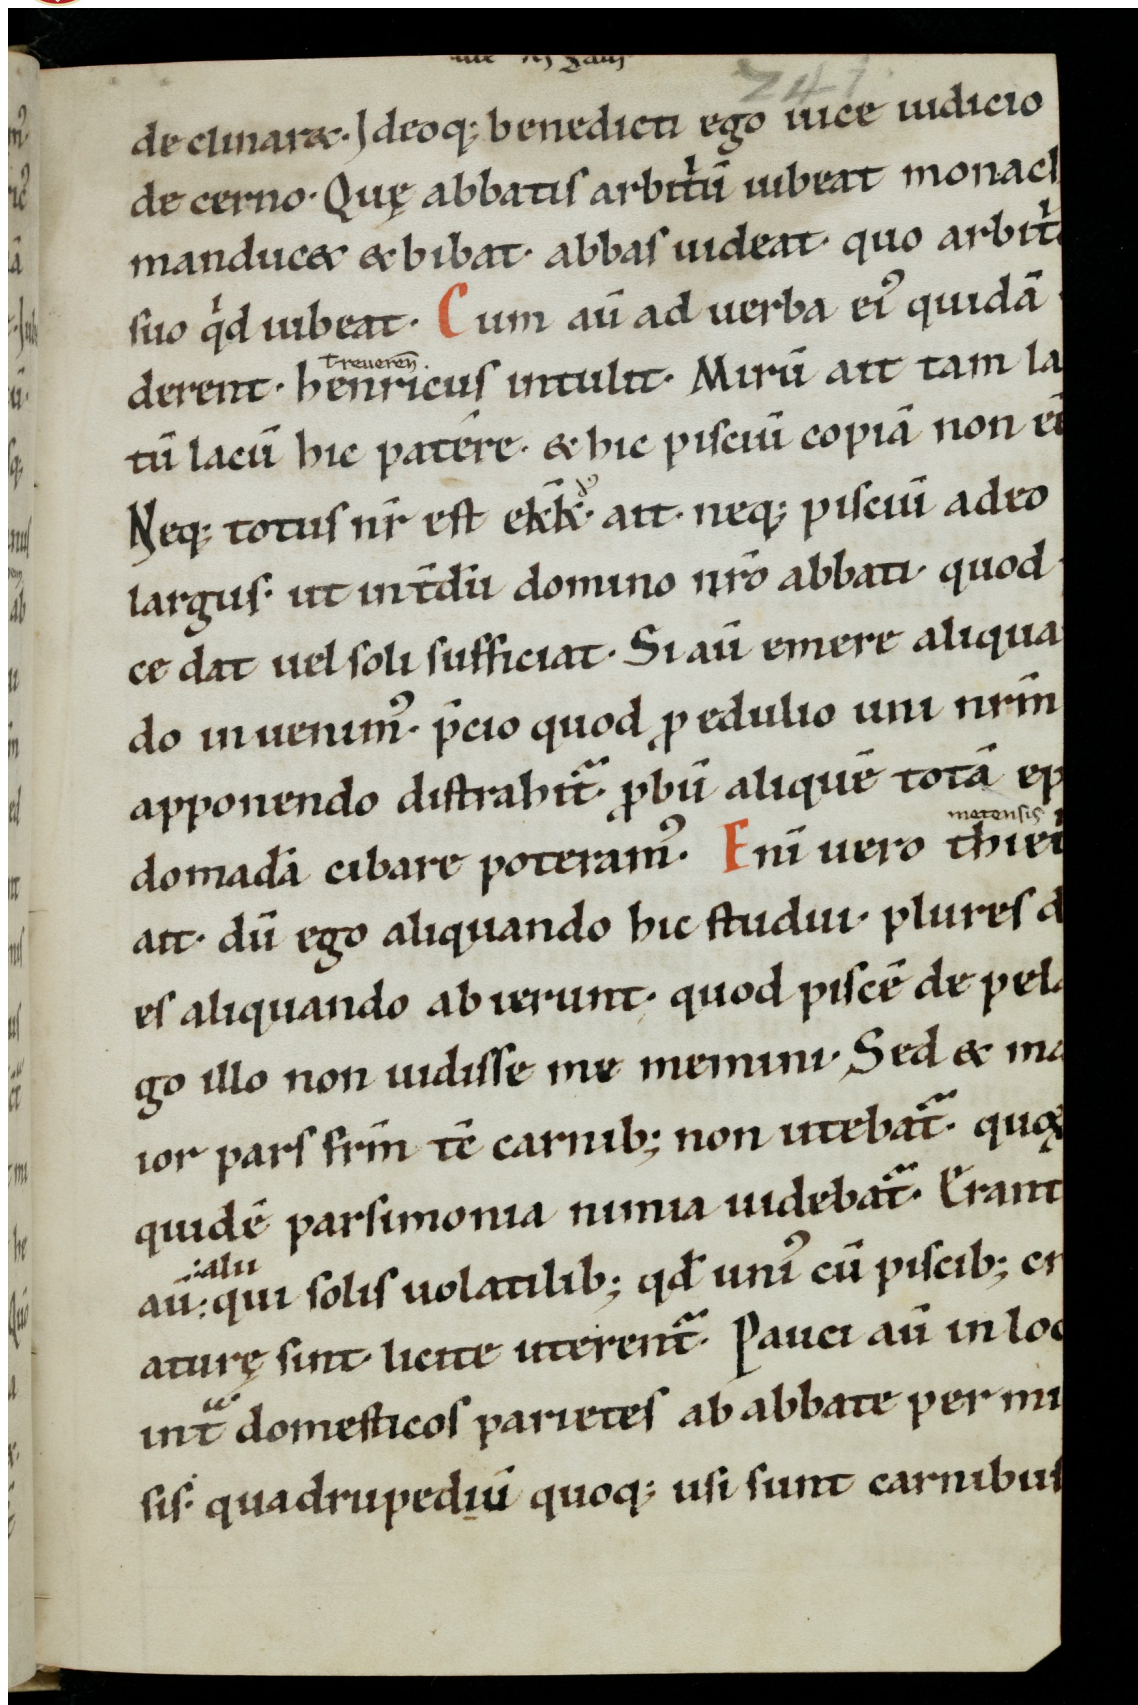 241
declinar&. Ideoq; benedicti ego uice iudicio
decerno. Quę abbatis arbit̾ū iubeat monach
manduc& & bibat. abbas uideat. quo arbit̾
suo qͥd iubeat. Cum aū ad uerba ei᾽ quidā
treueren̄.
derent. henricus intulit. Mirū ait tam la
tū lacū hic patére. & hic pisciū copiā non eē
Neq; totus nr̄ est ekk̄. ait. neq; pisciū adeo
largus. ut int̄dū domino nr̄o abbati. quod
ce dat uel soli sufficiat. Si aū emere aliqua
do inuenim᾽. p̄cio quod ꝓ edulio uni nr̄m
apponendo distrahitᷓ. ꝓbū aliquē totā ep
metensis
domadā cibare poteram᾽. Enī uero thiet
ait. dū ego aliquando hic studui. plures d
es aliquando abierunt. quod piscē de pela
go illo non uidisse me memini. Sed & ma
ior pars frm̄ tē carnib; non utebatᷓ. quoꝝ
quidē parsimonia nimia uidebatᷓ. Erant
alii
aū: qui solis uolatilib; qd̄ uni᾽ cū piscib; cr
aturę sint. licite uterentᷓ. Pauci aū in loc
intᷓ domesticos parietes ab abbate permi
sis. quadrupediū quoq; usi sunt carnibus